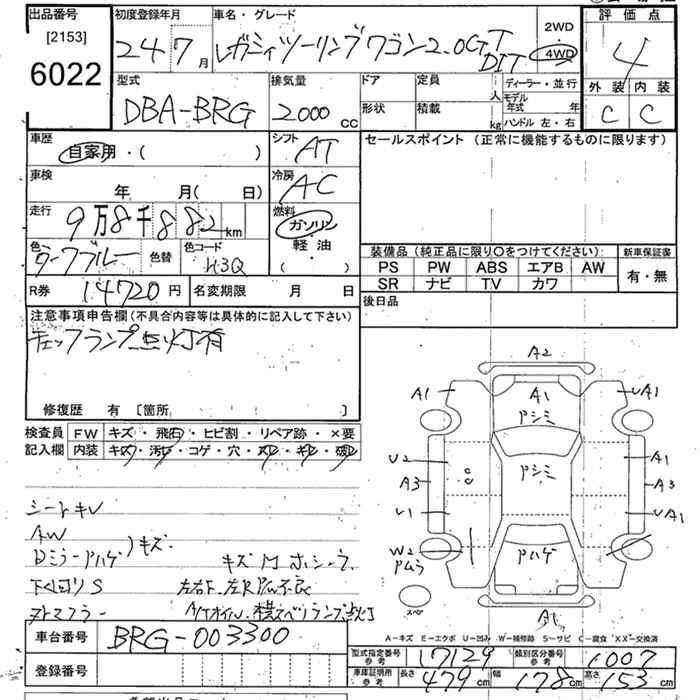 出品番号 [2153] 6022
初度登録年月 24 7 月
車名・グレード レガシィツーリングワゴン2.0GT DIT
2WD 4WD
評価点 4
外装 内装
C C
型式 DBA-BRG
排気量 2000 cc
ドア 定員 人
形状 積載 kg
ディーラー・並行
モデル年式 年
ハンドル 左・右
車歴 自家用・( )
シフト AT
セールスポイント (正常に機能するものに限ります)
車検 年 月( 日)
冷房 AC
走行 9万8千882km
燃料 ガソリン 軽油 ( ・ )
色 ダークブルー 色替 色コード H3Q
装備品 (純正品に限り○をつけてください) 新車保証書
PS PW ABS エアB AW 有・無
SR ナビ TV カワ
R券 14720 円 名変期限 月 日
後日品
注意事項申告欄(不具合内容等は具体的に記入して下さい)
チェックランプ点灯有
修復歴 有 [箇所 ]
検査員 FW キズ・飛石・ヒビ割・リペア跡・×要
記入欄 内装 キズ・汚レ・コゲ・穴・スレ・キレ・破レ
A2
A1 A1 UA1
アシミ
U2 アシミ A1
A3 A3
U1 UA1
W2 アハゲ
スペ
A1
シートキレ
AW
Dミラーアハゲ )キズ
下回りS
左右F.左R P/W不良
A/Tオイル.横スベリランプ点灯
A-キズ E-エクボ U-凹み W-補修跡 S-サビ C-腐食 "XX"-交換済
車台番号 BRG-003300
型式指定番号 参考 17129 類別区分番号 参考 1007
登録番号
車庫証明用 参考 長さ 479cm 幅 178cm 高さ 153cm